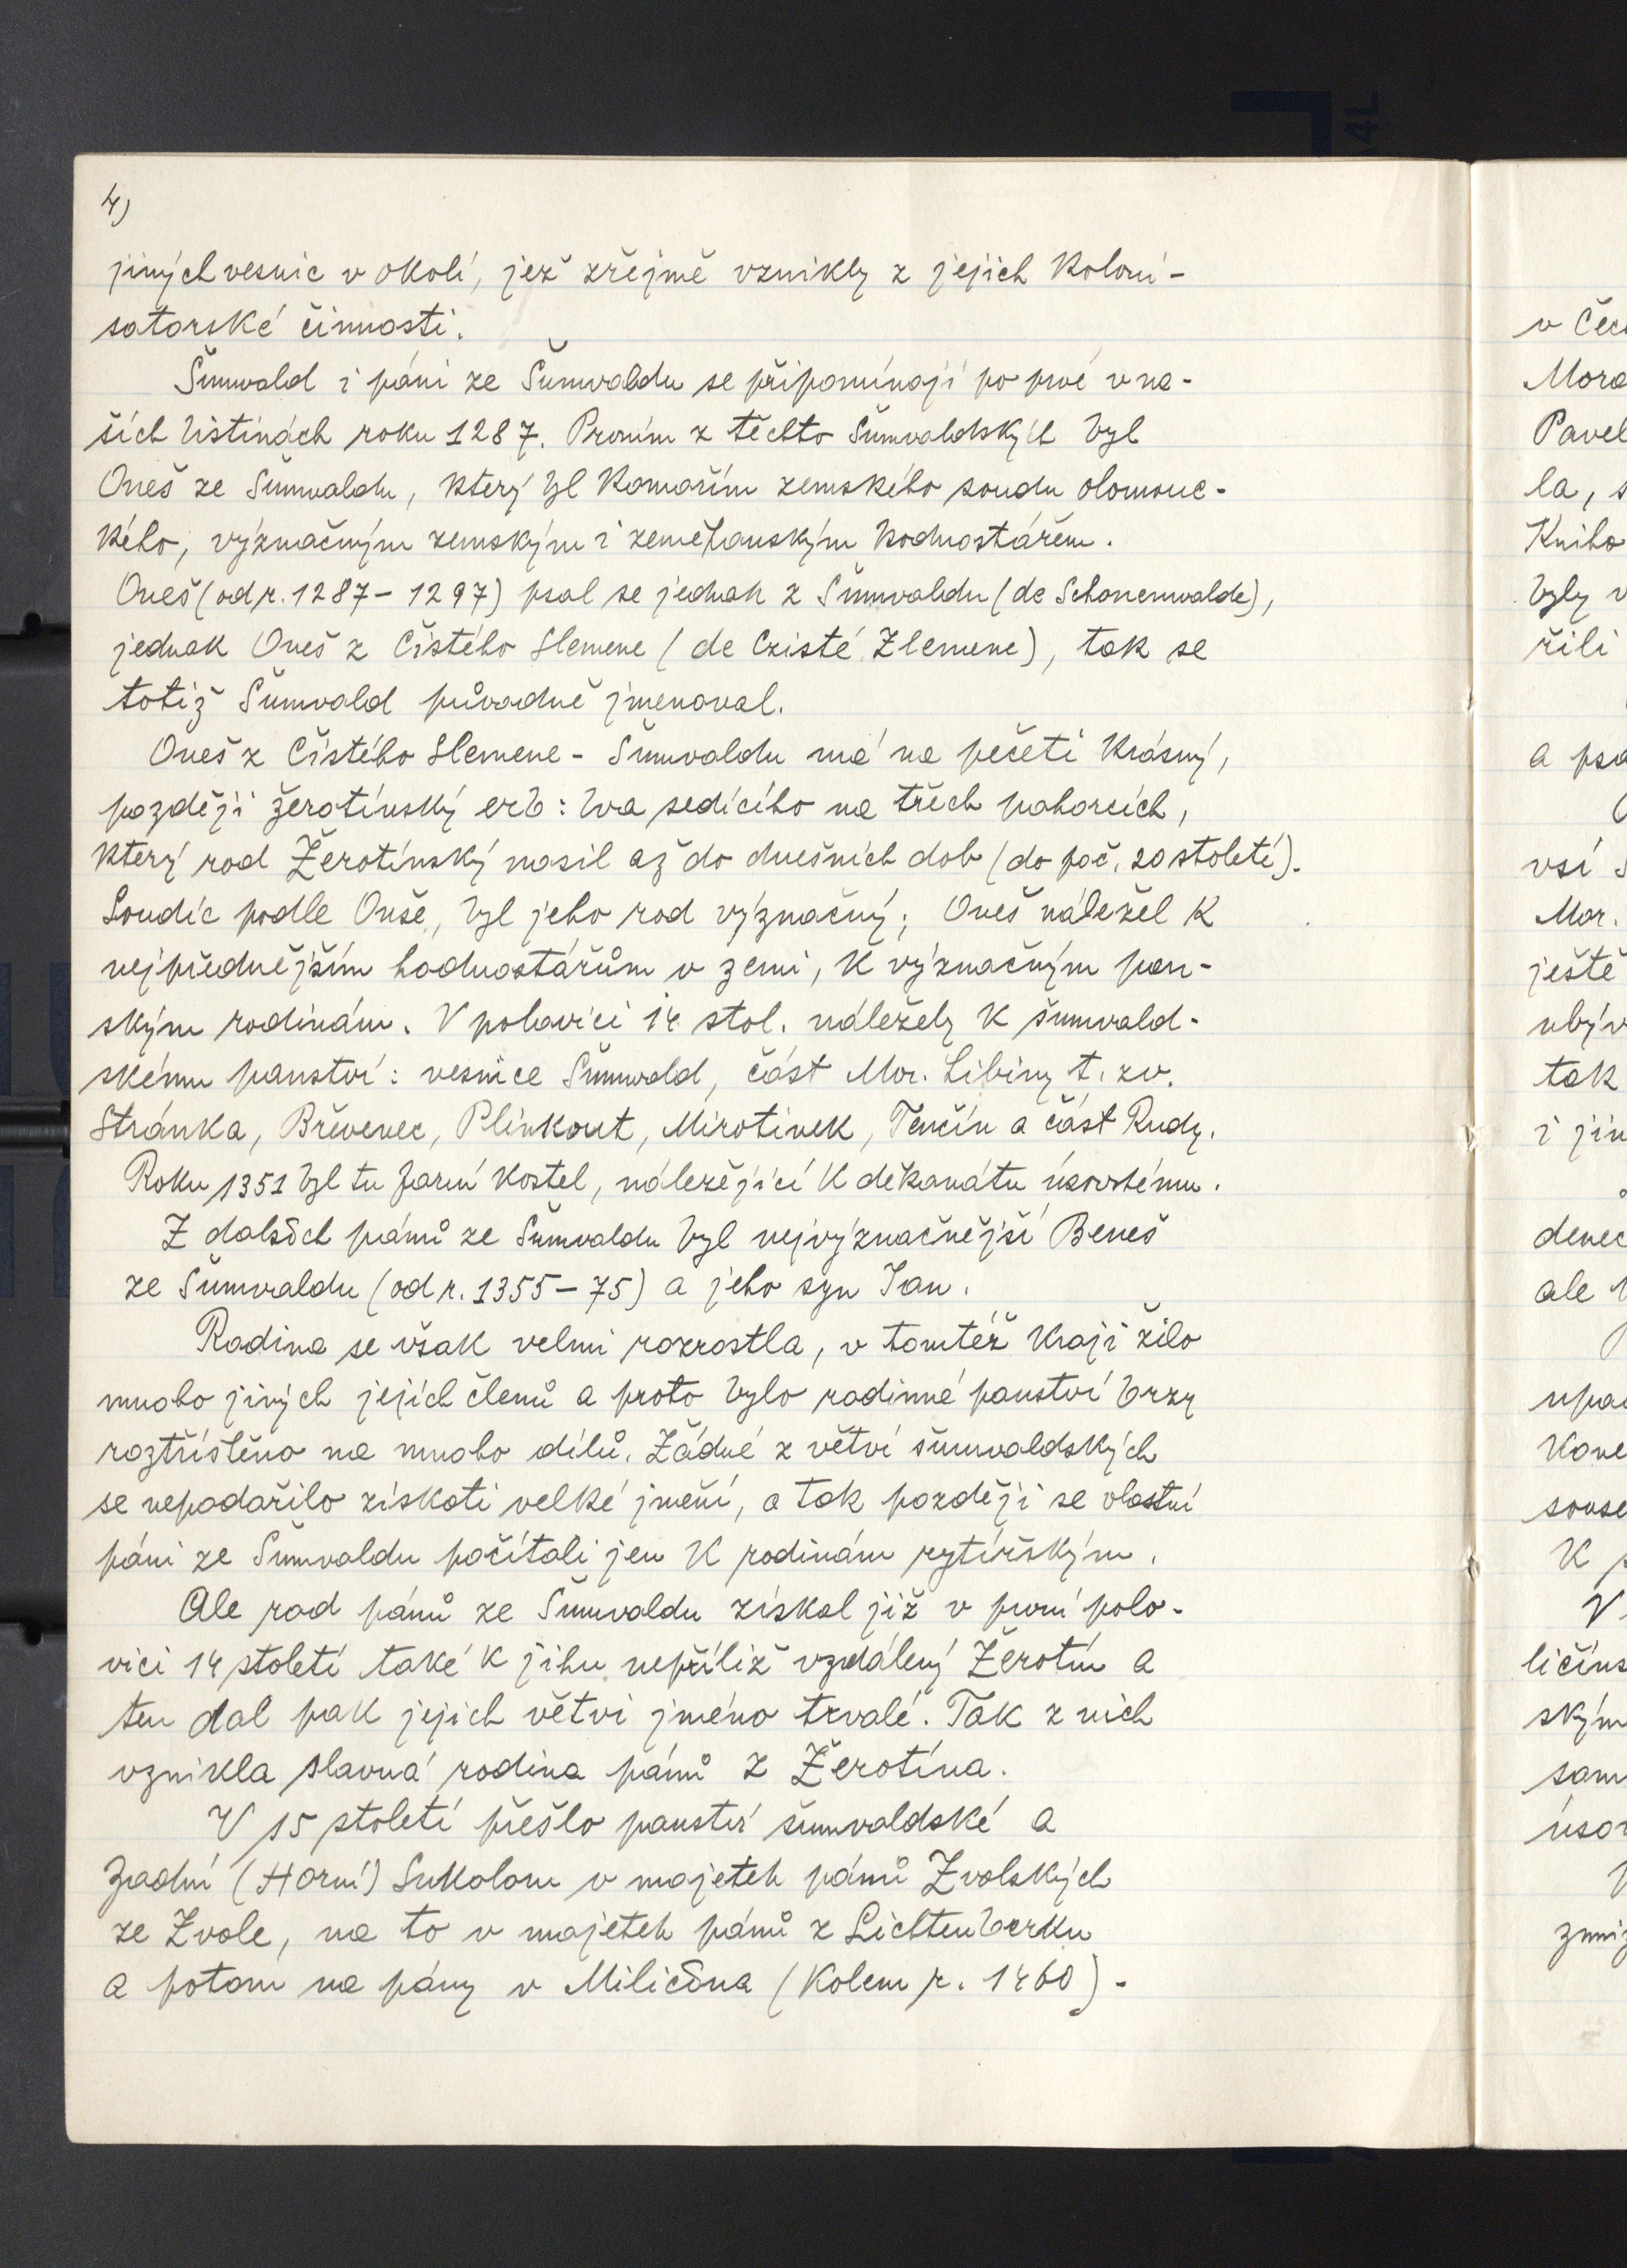 4)
jiných vesnic v okolí, jež zřejmě vznikly z jejich koloni-
satorské činnosti.
Šumvald i páni ze Šumvaldu se připomínají po prvé v na-
šich listinách roku 1287. Prvním z těchto šumvaldských byl
Oneš ze Šumvaldu, který byl komořím zemského soudu olomouc-
kého, význačným zemským i zeměpanským hodnostářem.
Oneš (od r. 1287 - 1297) psal se jednak z Šumvaldu (de Schonenwalde),
jednak Oneš z Čistého Slemene (de Czisté Zlemene), tak se
totiž Šumvald původně jmenoval.
Oneš z Čistého Slemene - Šumvaldu má na pečeti krásný,
později žerotínský erb: lva sedícího na třech pahorcích,
který rod Žerotínský nosil až do dnešních dob (do poč. 20 století).
Soudíc podle Onše, byl jeho rod význačný; Oneš náležel k
nejpřednějším hodnostářům v zemi, k význačným pan-
ským rodinám. V polovici 14 stol. náležely k šumvald-
skému panství: vesnice Šumvald, část Mor. Libiny t. zv.
Stránka, Břevenec, Plinkout, Mirotínek, Tenčín a část Rudy.
Roku 1351 byl tu farní kostel, náležející k děkanátu úsovskému.
Z dalších pánů ze Šumvaldu byl nejvýznačnější Beneš
ze Šumvaldu (od r. 1355 - 75) a jeho syn Jan.
Rodina se však velmi rozrostla, v tomtéž kraji žilo
mnoho jiných jejích členů a proto bylo rodinné panství brzy
roztříštěno na mnoho dílů. Žádné z větví šumvaldských
se nepodařilo získati velké jmění, a tak později se vlastní
páni ze Šumvaldu počítali jen k rodinám rytířským.
Ale rod pánů ze Šumvaldu získal již v první polo-
vici 14 století také k jihu nepříliž vzdálený Žerotín a
ten dal pak jejich větvi jméno trvalé. Tak z nich
vznikla slavná rodina pánů z Žerotína.
V 15 století přešlo panství šumvaldské a
Zadní (Horní) Sukolom v majetek pánů Zvolských
ze Zvole, na to v majetek pánů z Lichtenberku
a potom na pány v Miličína (kolem r. 1460).
v Čec
Mora
Pavel
la, s
Kniho
byly v
řili
a psa
vsí
Mor.
ještě
ubýv
tak
i jin
denec
ale
upa
Kone
souse
K
V
ličíns
ským
sam
úsov
zmiz